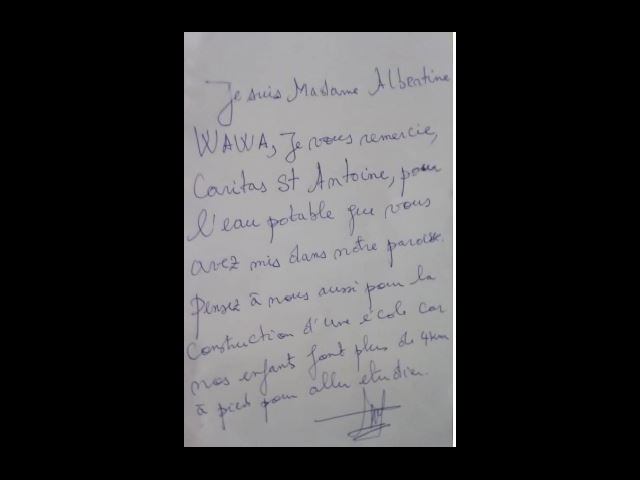 Je suis Madame Albertine
WAWA, Je vous remercie,
Caritas St Antoine, pour
l'eau potable que vous
avez mis dans notre paroisse.
Pensez à nous aussi pour la
construction d'une école car
nos enfant font plus de 4km
à pied pour aller etudier.